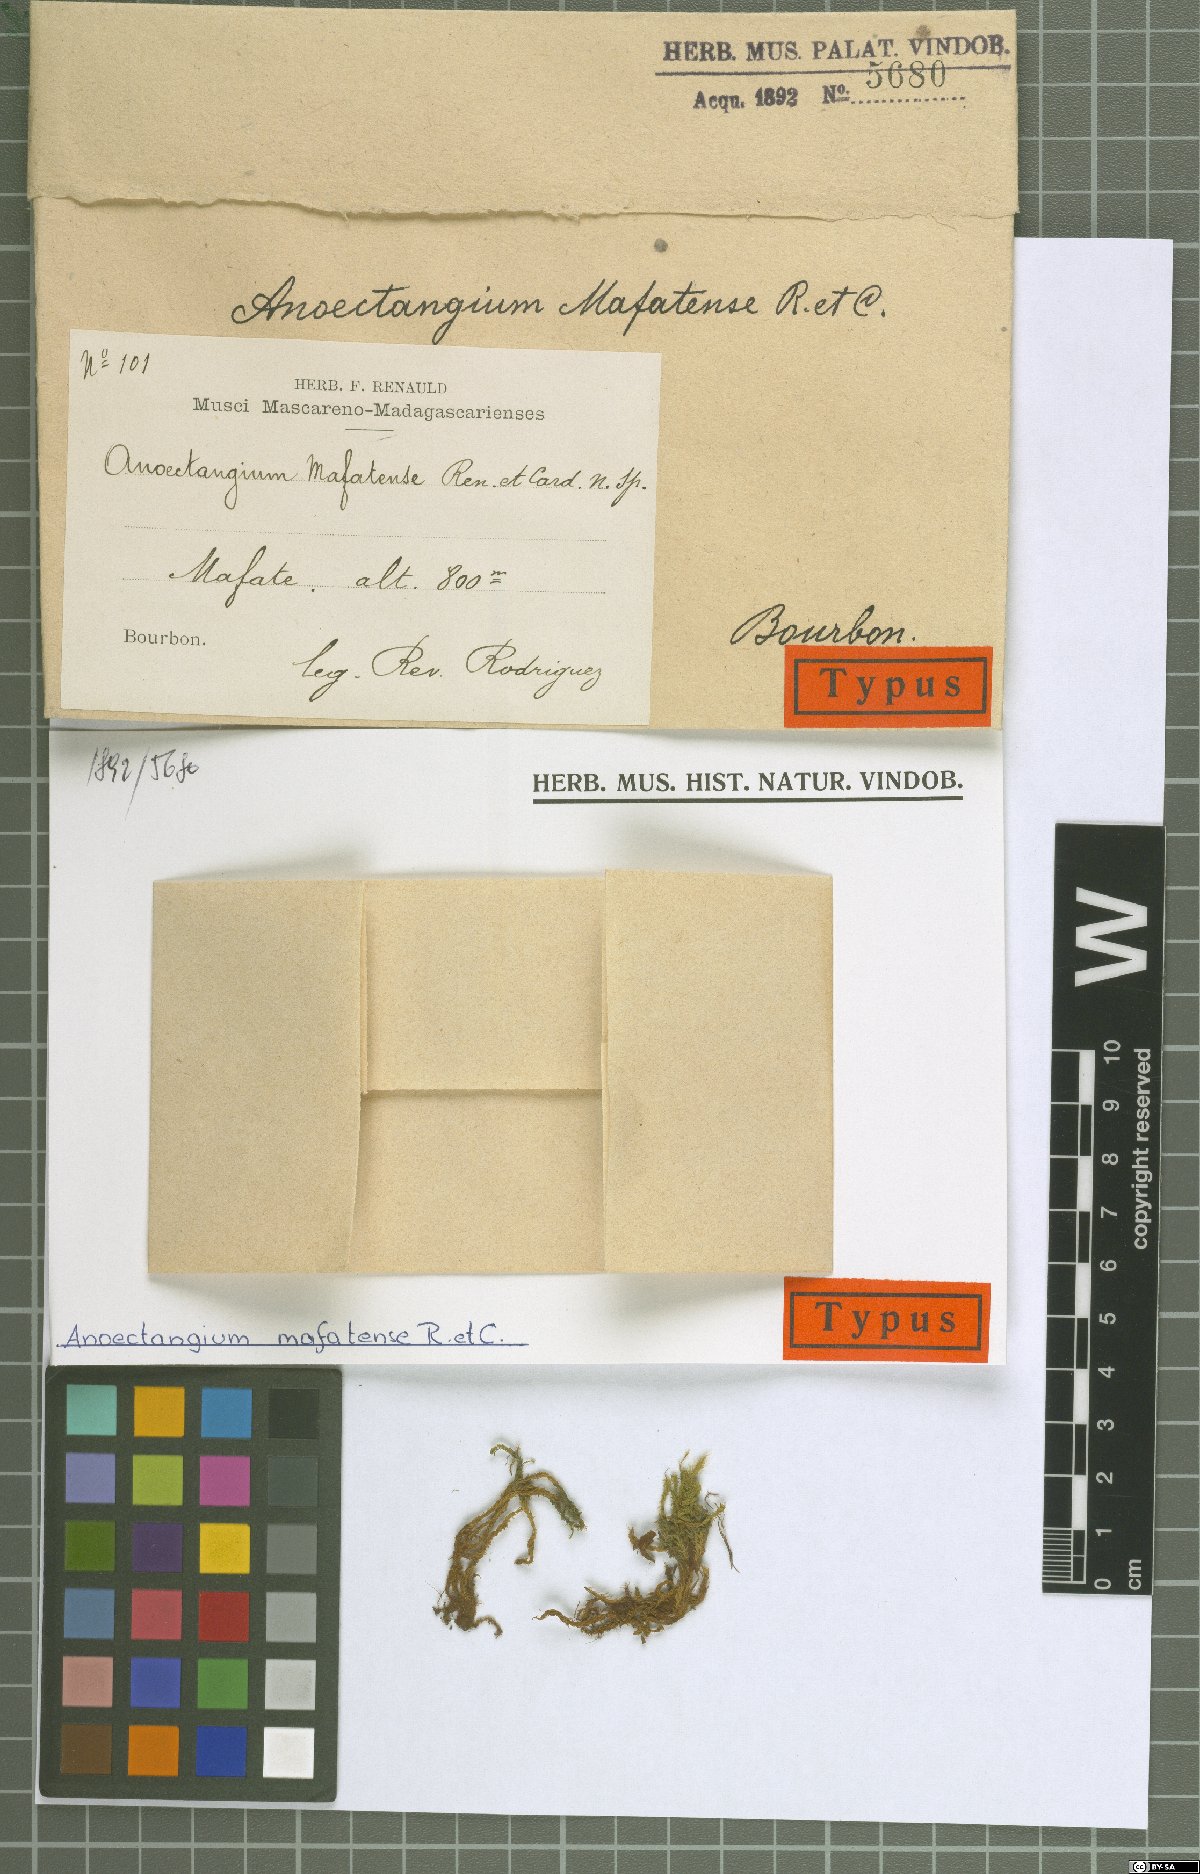 HERB. MUS. PALAT. VINDOB.
Acqu. 1892 No. 5680
Anoectangium Mafatense R. et C.
No 101
HERB. F. RENAULD
Musci Mascareno-Madagascarienses
Anoectangium Mafatense Ren. et Card. n. sp.
Mafate. alt. 800m
Bourbon.
leg. Rev. Rodriguez
Bourbon.
Typus
1892/5680
HERB. MUS. HIST. NATUR. VINDOB.
Anoectangium mafatense R. et C.
Typus
W
0 1 2 3 4 5 6 7 8 9 10
cm
copyright reserved
cc BY-SA